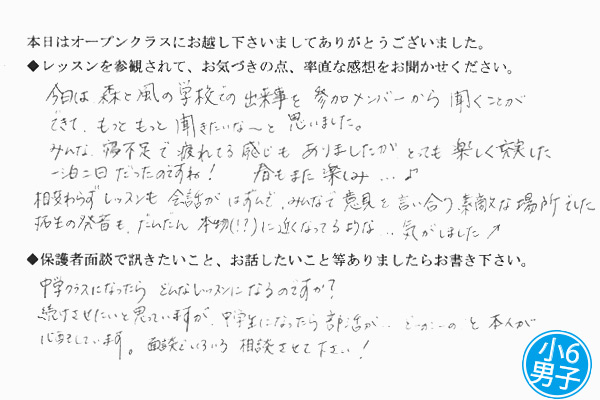 本日はオープンクラスにお越し下さいましてありがとうございました。
◆レッスンを参観されて、お気づきの点、率直な感想をお聞かせください。
今日は 森と風の学校での 出来事を 参加メンバーから 聞くことが
できて、もっと もっと 聞きたいな〜と 思いました。
みんな、寝不足で 疲れてる 感じも ありましたが、とっても 楽しく充実した
一泊二日 だったのですね! 春もまた 楽しみ...♪
相変わらず レッスンも 会話が はずんで、みんなで 意見を 言い合う、素敵な場所でした
拓生の発音も、だんだん 本物(!?)に近くなってるような... 気がしました↗
◆保護者面談で訊きたいこと、お話したいこと等ありましたらお書き下さい。
中学クラスになったら どんなレッスンに なるのですか?
続けさせたいと 思っていますが、中学生になったら 部活が... と 本人が
心配しています。面談で いろいろ 相談させて下さい!
小6
男子